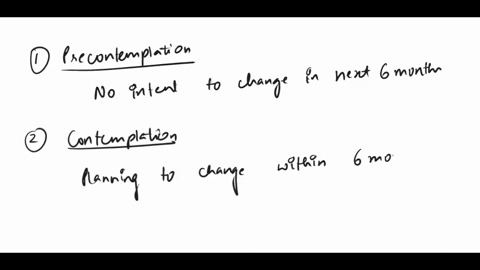 ① Precontemplation
No intent to change in next 6 months
② Contemplation
Planning to change within 6 mo